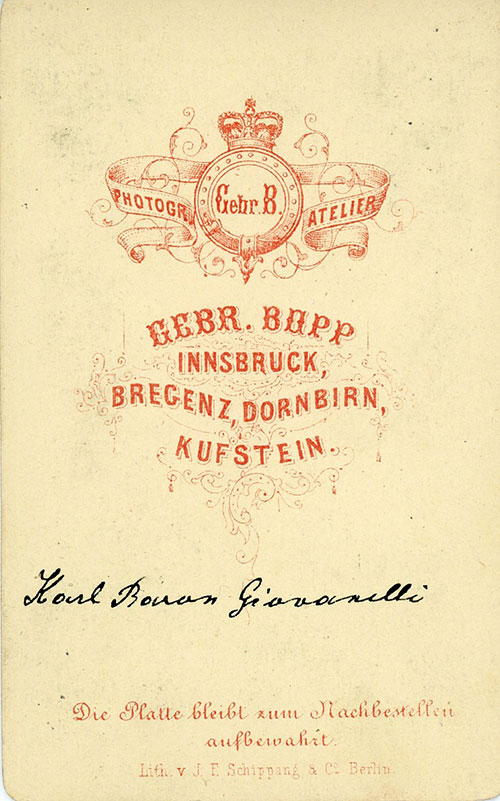 PHOTOGR. Gebr. B. ATELIER
GEBR. BOPP
INNSBRUCK,
BREGENZ, DORNBIRN,
KUFSTEIN.
Karl Baron Giovanelli
Die Platte bleibt zum Nachbestellen
aufbewahrt.
Lith. v. J. F. Schippang & Co. Berlin.